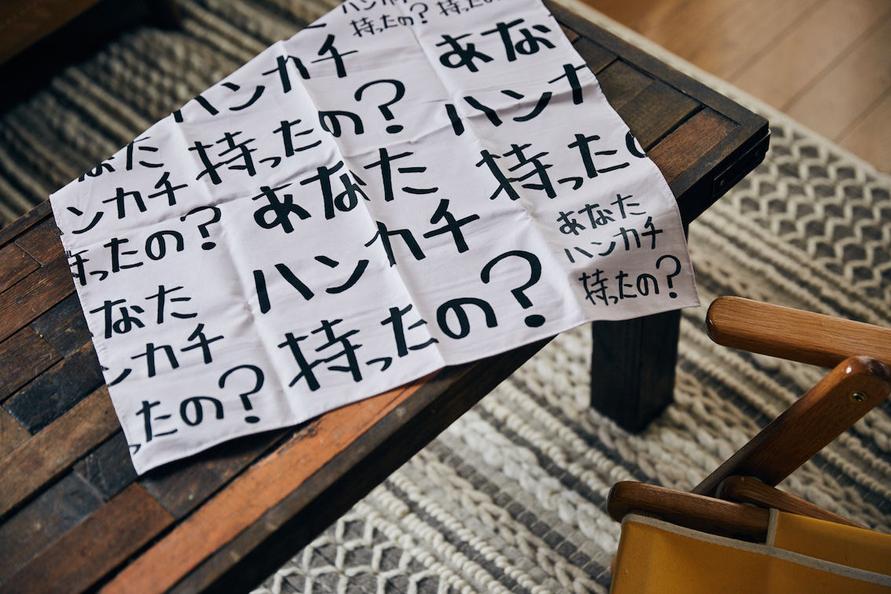 ハンカチ
持ったの?
持ったの?
あな
ハンカ
持ったの
ハンカチ
持ったの?
あなた
ハンカチ
持ったの?
あなた
ハンカチ
持ったの?
なた
ンカチ
持ったの?
なた
ンカチ
ったの?